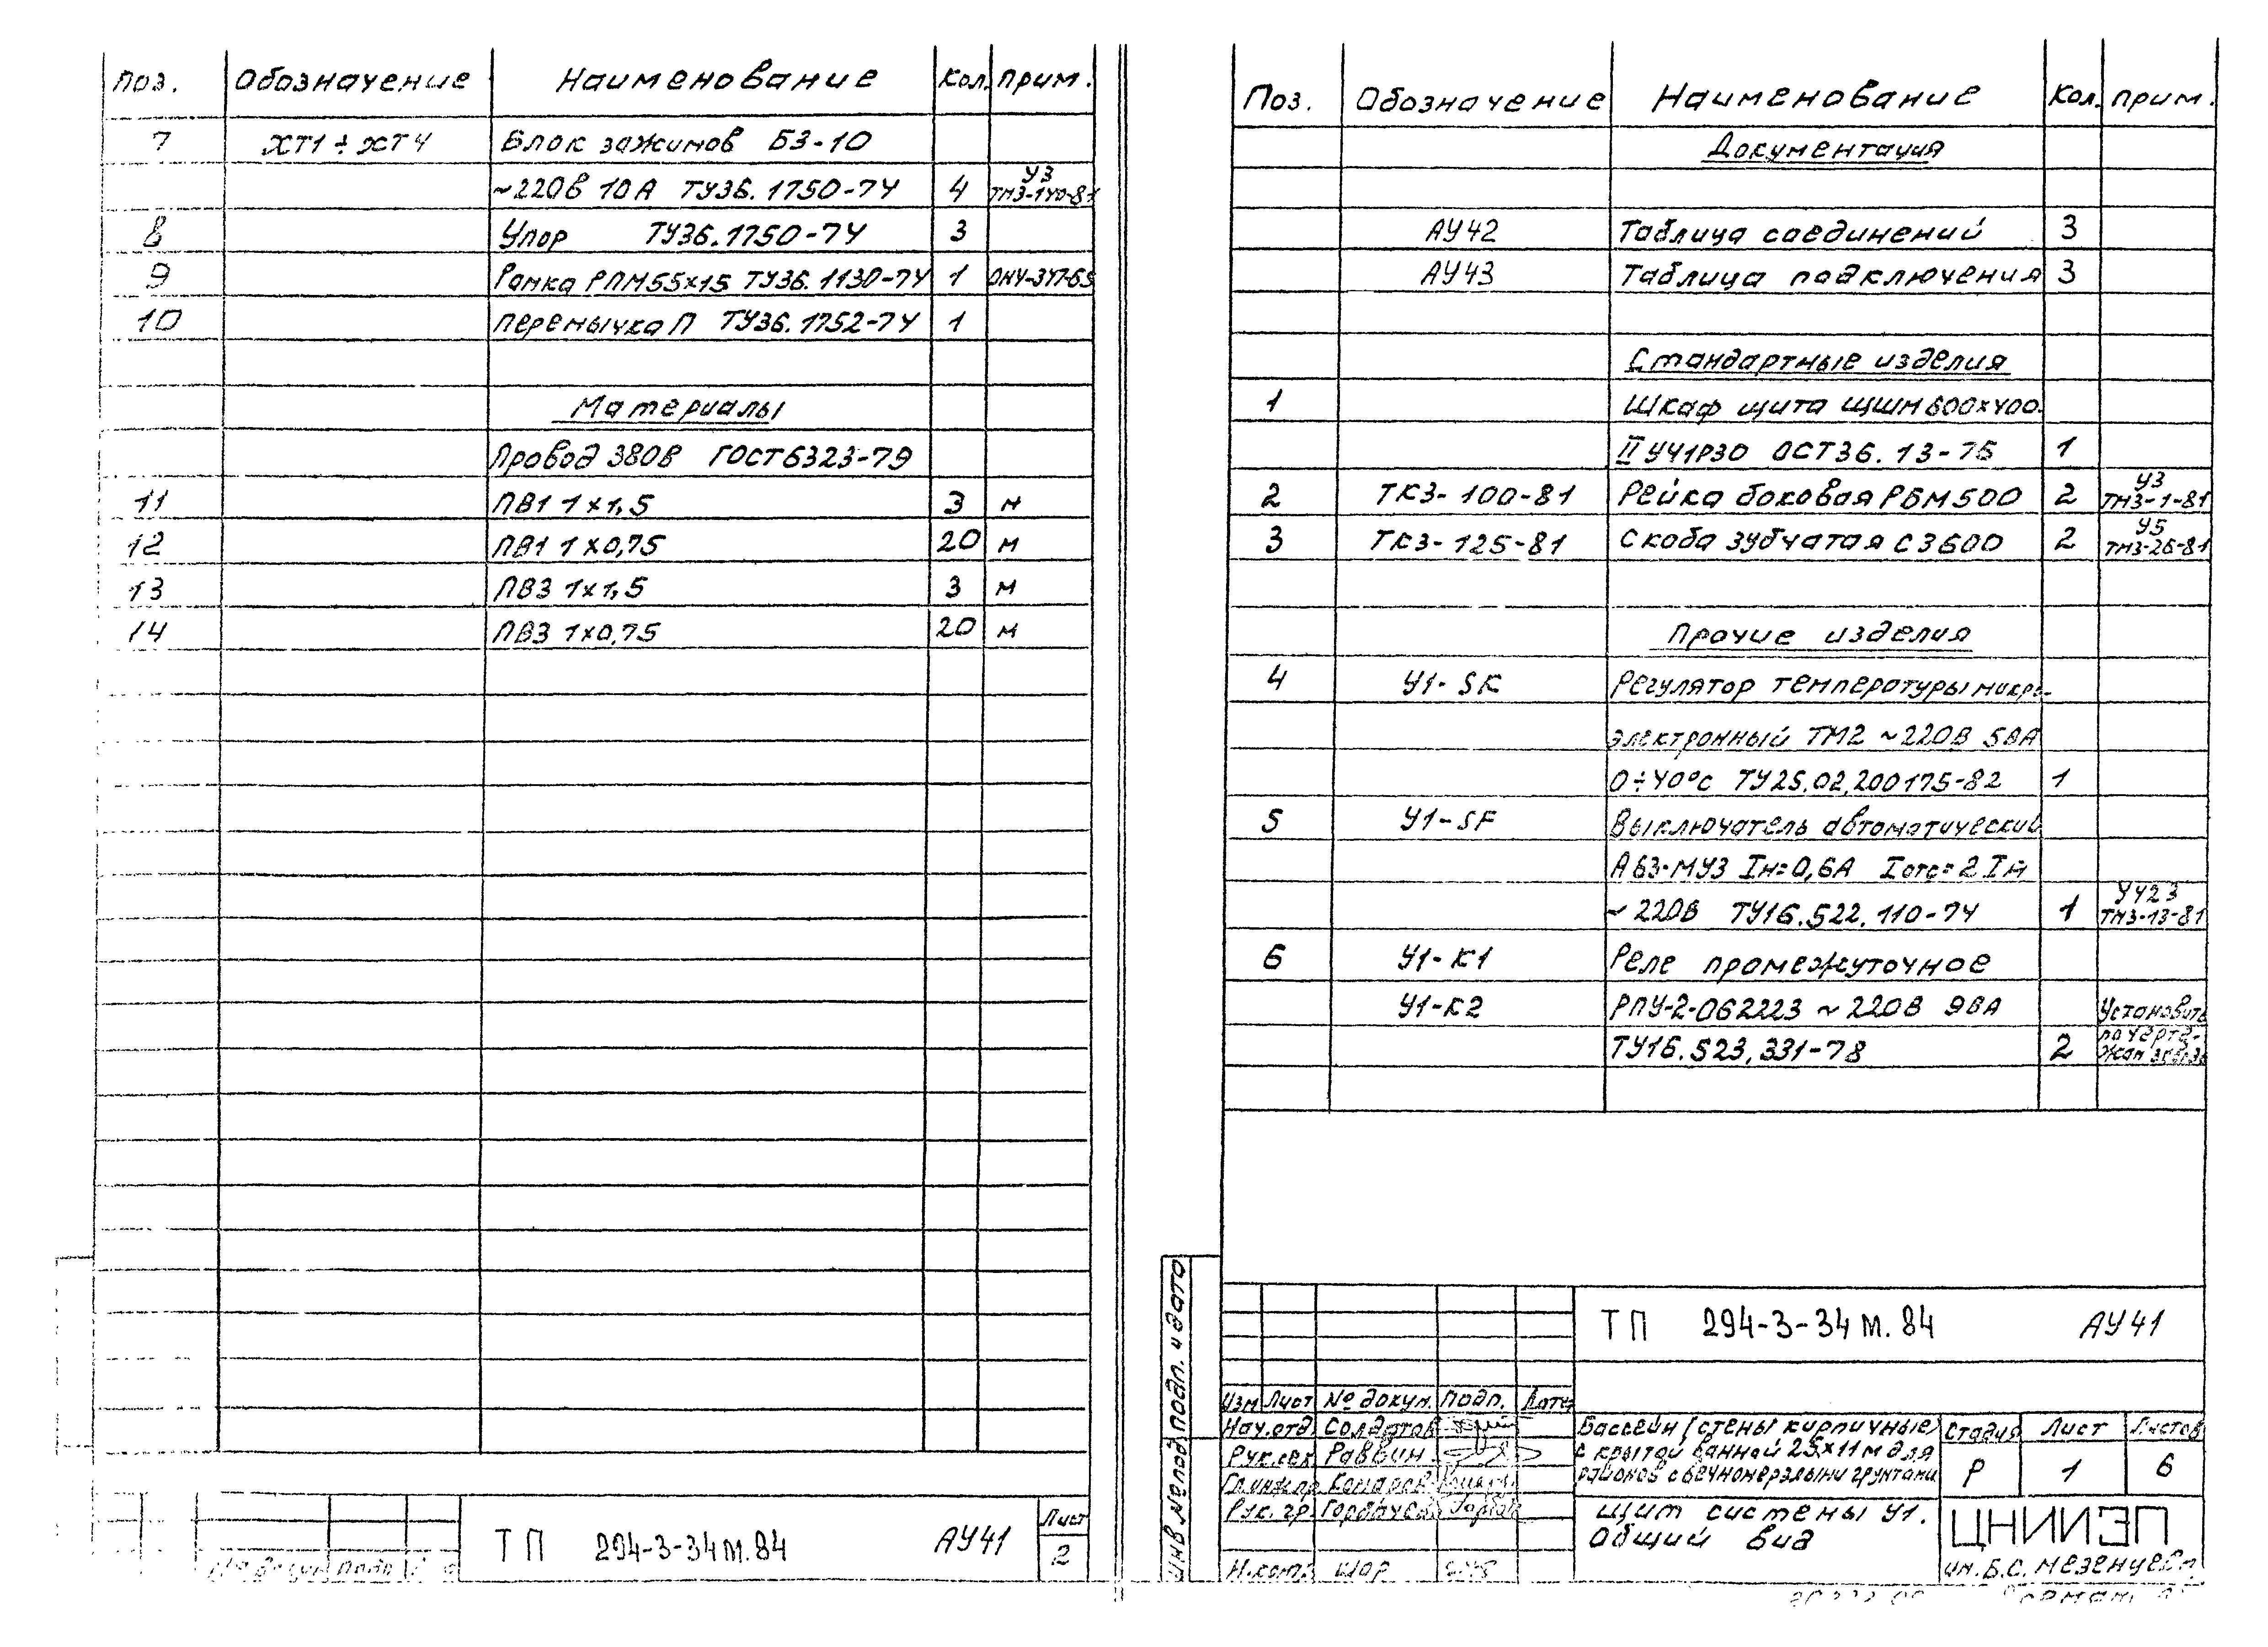 Поз. Обозначение Наименование Кол. Прим.
7 ХТ1÷ХТ4 Блок зажимов БЗ-10
~220В 10А ТУ36.1750-74 4 У3 ТМ3-140-81
8 Упор ТУ36.1750-74 3
9 Рамка РПМ55х15 ТУ36.1130-74 1
10 Перемычка П ТУ36.1752-74 1
Материалы
Провод 380В ГОСТ6323-79
11 ПВ1 1х1,5 3 м
12 ПВ1 1х0,75 20 м
13 ПВ3 1х1,5 3 м
14 ПВ3 1х0,75 20 м
ТП 294-3-34М.84 АУ41
Лист
2
Поз. Обозначение Наименование Кол. Прим.
Документация
АУ42 Таблица соединений 3
АУ43 Таблица подключения 3
Стандартные изделия
1 Шкаф щита ЩШМ600х400-
II УЧ1Р30 ОСТ36.13-76 1
2 ТК3-100-81 Рейка боковая РБМ500 2 У3 ТМ3-1-81
3 ТК3-125-81 Скоба зубчатая СЗ600 2 У5 ТМ3-26-81
Прочие изделия
4 У1-SK Регулятор температуры микро-
электронный ТМ2 ~220В 5ВА
0÷40°С ТУ25.02.200175-82 1
5 У1-SF Выключатель автоматический
А63-МУ3 Iн=0,6А Iотс=2Iн
~220В ТУ16.522.110-74 1 УЧ23 ТМ3-13-81
6 У1-К1 Реле промежуточное
У1-К2 РПУ-2-062223 ~220В 9ВА Установить
ТУ16.523.331-78 2 по черте-
Инв № подл Подп. и дата
ТП 294-3-34М.84 АУ41
Изм Лист № докум. Подп. Дата
Нач.отд. Солдатов
Рук.сек. Раввин
Гл.инж.пр. Комаров
Рук. гр. Горбунова
Н.конт. Шор
Бассейн (стены кирпичные)
с крытой ванной 25х11м для
районов с вечномерзлыми грунтами
Стадия Лист Листов
Р 1 6
Щит системы У1.
Общий вид
ЦНИИЭП
им. Б.С. Мезенцева